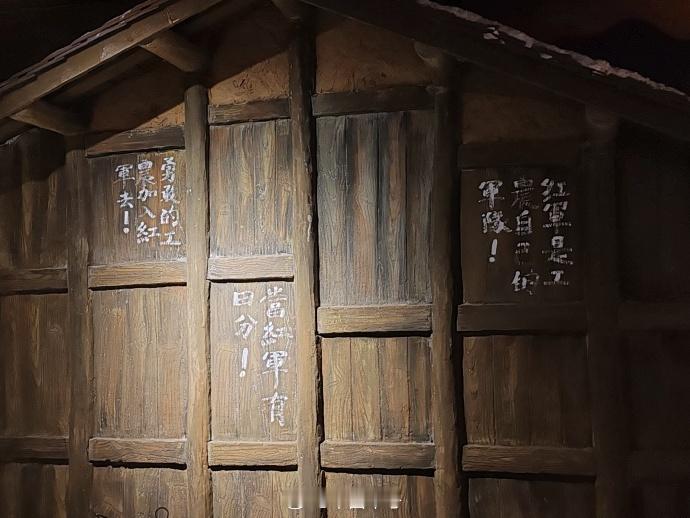 紅軍是工
農自己的
軍隊！
當紅軍有
田分！
勇敢的工
農加入紅
軍去！